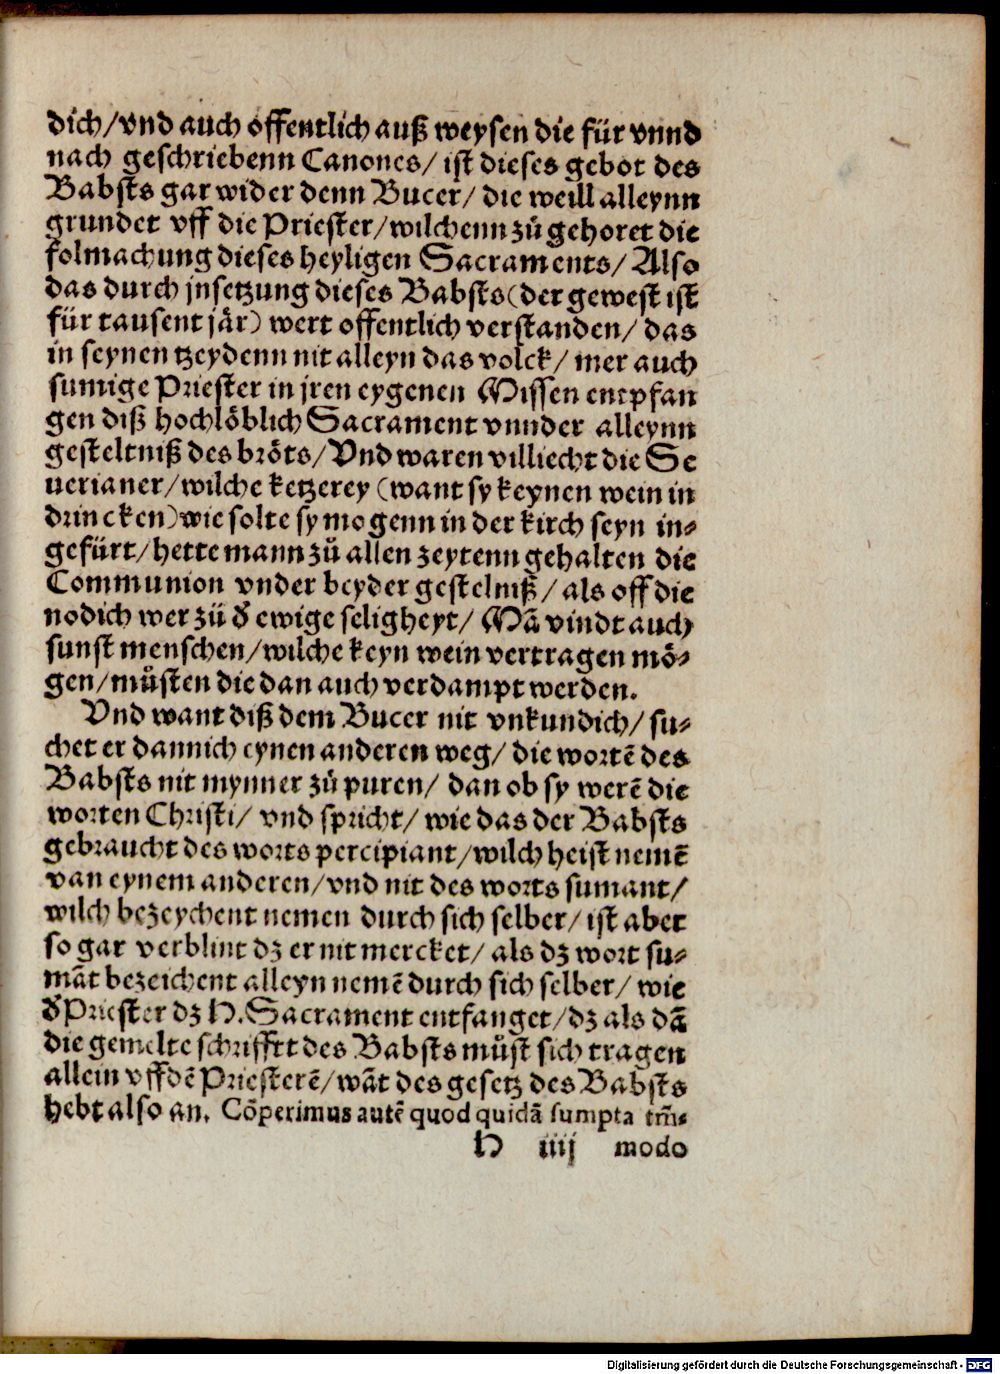 dich/vnd auch offentlich auß weysen die für vnnd
nach geschriebenn Canones/ ist dieses gebot des
Babsts gar wider denn Bucer/ die weill alleynn
grundet vff die Priester/wilchenn zů gehoret die
folmachung dieses heyligen Sacraments/ Also
das durch jnsetzung dieses Babsts(der gewest ist
für tausent jâr) wert offentlich verstanden/ das
in seynen tzeydenn nit alleyn das volck/ mer auch
sumige Priester in jren eygenen Missen entpfan
gen diß hochlöblich Sacrament vnnder alleynn
gesteltniß des bröts/ Vnd waren villiecht die Se
uerianer/wilche ketzerey (want sy keynen wein in
drincken)wie solte sy mogenn in der kirch seyn in⸗
gefürt/ hette mann zů allen zeytenn gehalten die
Communion vnder beyder gestelniß/ als off die
nodich wer zů d̕ ewige seligheyt/ Mā vindt auch
sunst menschen/wilche keyn wein vertragen mö⸗
gen/ můsten die dan auch verdampt werden.
Vnd want diß dem Bucer nit vnkundich/ su⸗
chet er dannich eynen anderen weg/ die wortē des
Babsts nit mynner zů puren/ dan ob sy werē die
worten Christi/ vnd spricht/ wie das der Babsts
gebraucht des worts percipiant/wilch heist nemē
van eynem anderen/vnd nit des worts sumant/
wilch bezeychent nemen durch sich selber/ ist aber
so gar verblint dz er nit mercket/ als dz wort su⸗
māt bezeichent alleyn nemē durch sich selber/ wie
d̕ Priester dz H. Sacrament entfanget/dz als dā
die gemelte schrifftt des Babsts můst sich tragen
allein vffdē Priesterē/wāt des gesetz des Babsts
hebt also an. Cōperimus autē quod quidā sumpta tm̄⸗
H iiij modo
Digitalisierung gefördert durch die Deutsche Forschungsgemeinschaft - DFG